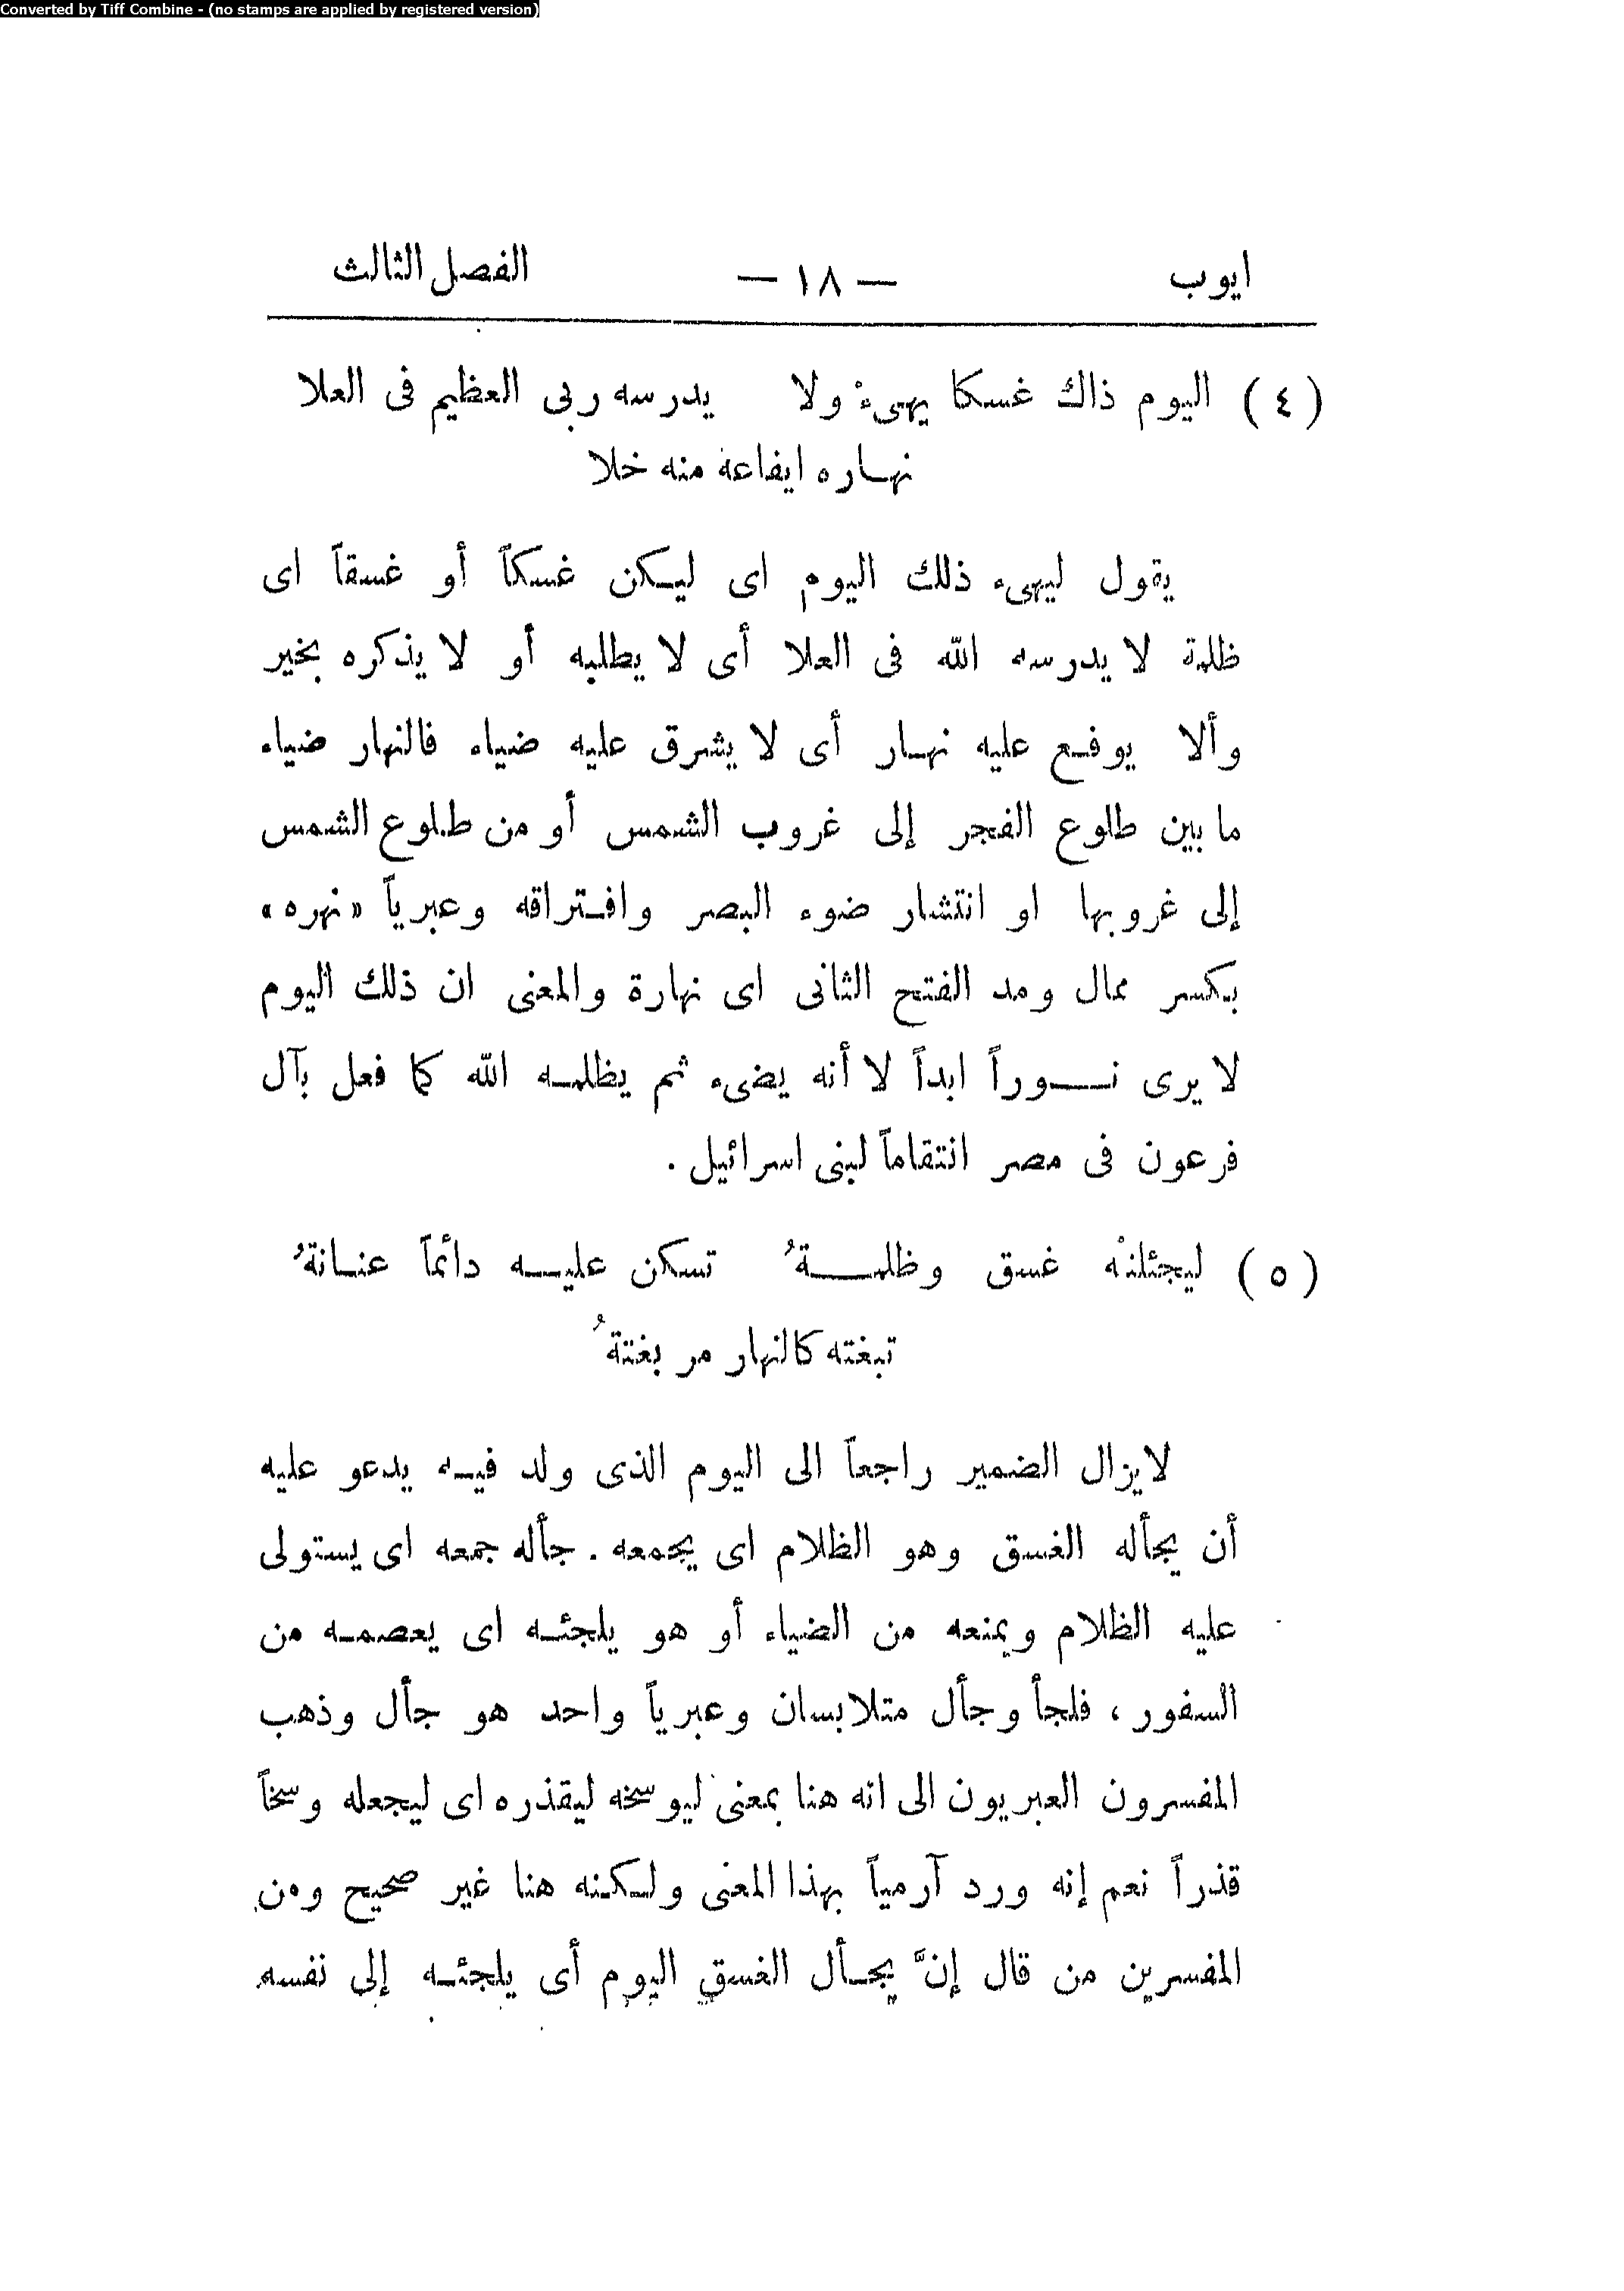 Converted by Tiff Combine - (no stamps are applied by registered version)
ايوب — ١٨ — الفصل الثالث
(٤) اليوم ذاك غسكا يهىءْ ولا يدرسه ربى العظيم فى العلا
نهاره ايفاعة منه خلا
يقول ليهىء ذلك اليوم اى ليكن غسكاً أو غسقاً اى
ظلمة لا يدرسه الله فى العلا أى لا يطلبه أو لا يذكره بخير
وألا يوفع عليه نهار أى لا يشرق عليه ضياء فالنهار ضياء
ما بين طلوع الفجر إلى غروب الشمس أو من طلوع الشمس
إلى غروبها او انتشار ضوء البصر وافتراقه وعبرياً «نهره»
بكسر ممال ومد الفتح الثانى اى نهارة والمعنى ان ذلك اليوم
لا يرى نوراً ابداً لا أنه يضىء ثم يظلمه الله كما فعل بآل
فرعون فى مصر انتقاماً لبنى اسرائيل .
(٥) ليجئلنْه غسق وظلمةُ تسكن عليه دائماً عنانةُ
تبغته كالنهار مر بغتةُ
لا يزال الضمير راجعاً الى اليوم الذى ولد فيه يدعو عليه
أن يجأله الغسق وهو الظلام اى يجمعه . جأله جمعه اى يستولى
عليه الظلام ويمنعه من الضياء أو هو يلجئه اى يعصمه من
السفور ، فلجأ وجأل متلابسان وعبرياً واحد هو جأل وذهب
المفسرون العبريون الى انه هنا بمعنى ليوسخه ليقذره اى ليجعله وسخاً
قذراً نعم إنه ورد آرمياً بهذا المعنى ولكنه هنا غير صحيح ومن
المفسرين من قال إنَّ يجأل الغسق اليوم أى يلجئه إلى نفسه